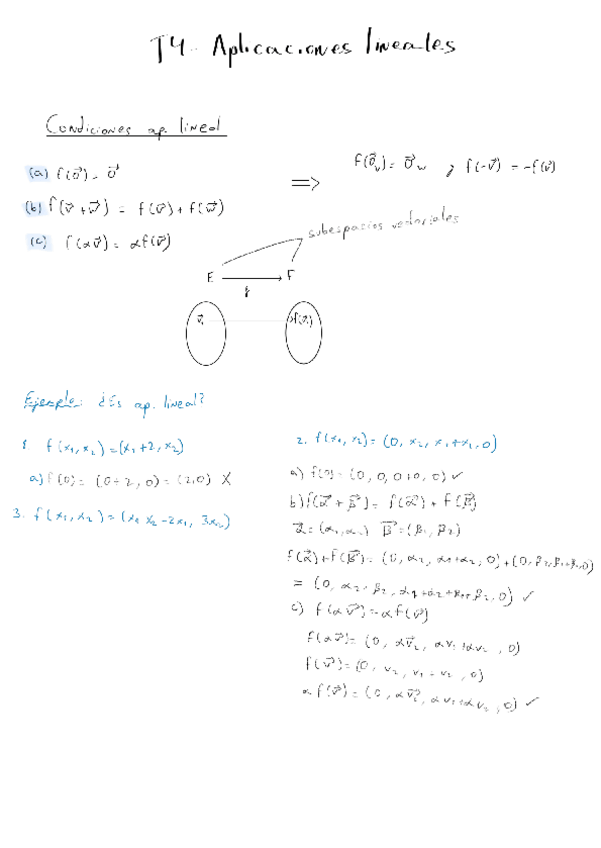 T4.- Aplicaciones lineales
Condiciones ap. lineal
(a) f(0⃗) = 0⃗
(b) f(v⃗ + w⃗) = f(v⃗) + f(w⃗)
(c) f(αv⃗) = αf(v⃗)
⇒ f(0⃗ᵥ) = 0⃗w ; f(-v⃗) = -f(v⃗)
subespacios vectoriales
E → F
f
v⃗ f(v⃗)
Ejemplo: ¿Es ap. lineal?
1. f(x₁, x₂) = (x₁+2, x₂)
a) f(0) = (0+2, 0) = (2,0) X
3. f(x₁, x₂) = (x₁ x₂ - 2x₁, 3x₂)
2. f(x₁, x₂) = (0, x₂, x₁+x₂, 0)
a) f(0) = (0, 0, 0+0, 0) ✓
b) f(α⃗ + β⃗) = f(α⃗) + f(β⃗)
α⃗ = (α₁, α₂) β⃗ = (β₁, β₂)
f(α⃗) + f(β⃗) = (0, α₂, α₁+α₂, 0) + (0, β₂, β₁+β₂, 0)
= (0, α₂+β₂, α₁+α₂+β₁+β₂, 0) ✓
c) f(αv⃗) = αf(v⃗)
f(αv⃗) = (0, αv⃗₂, αv₁+αv₂, 0)
f(v⃗) = (0, v₂, v₁+v₂, 0)
αf(v⃗) = (0, αv⃗₂, αv₁+αv₂, 0) ✓